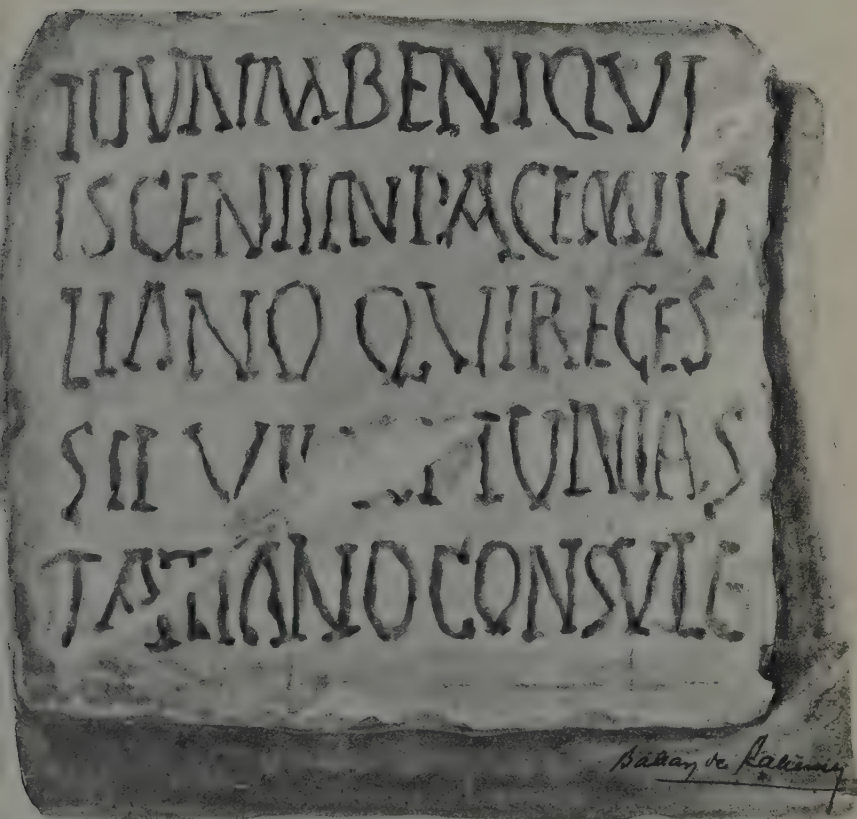 IUVANIMABENIQVI
ISCENIIINPACEMIU
LIANO QVIIRECES
SII VI IUNIAS
TASTIANOCONSVLE